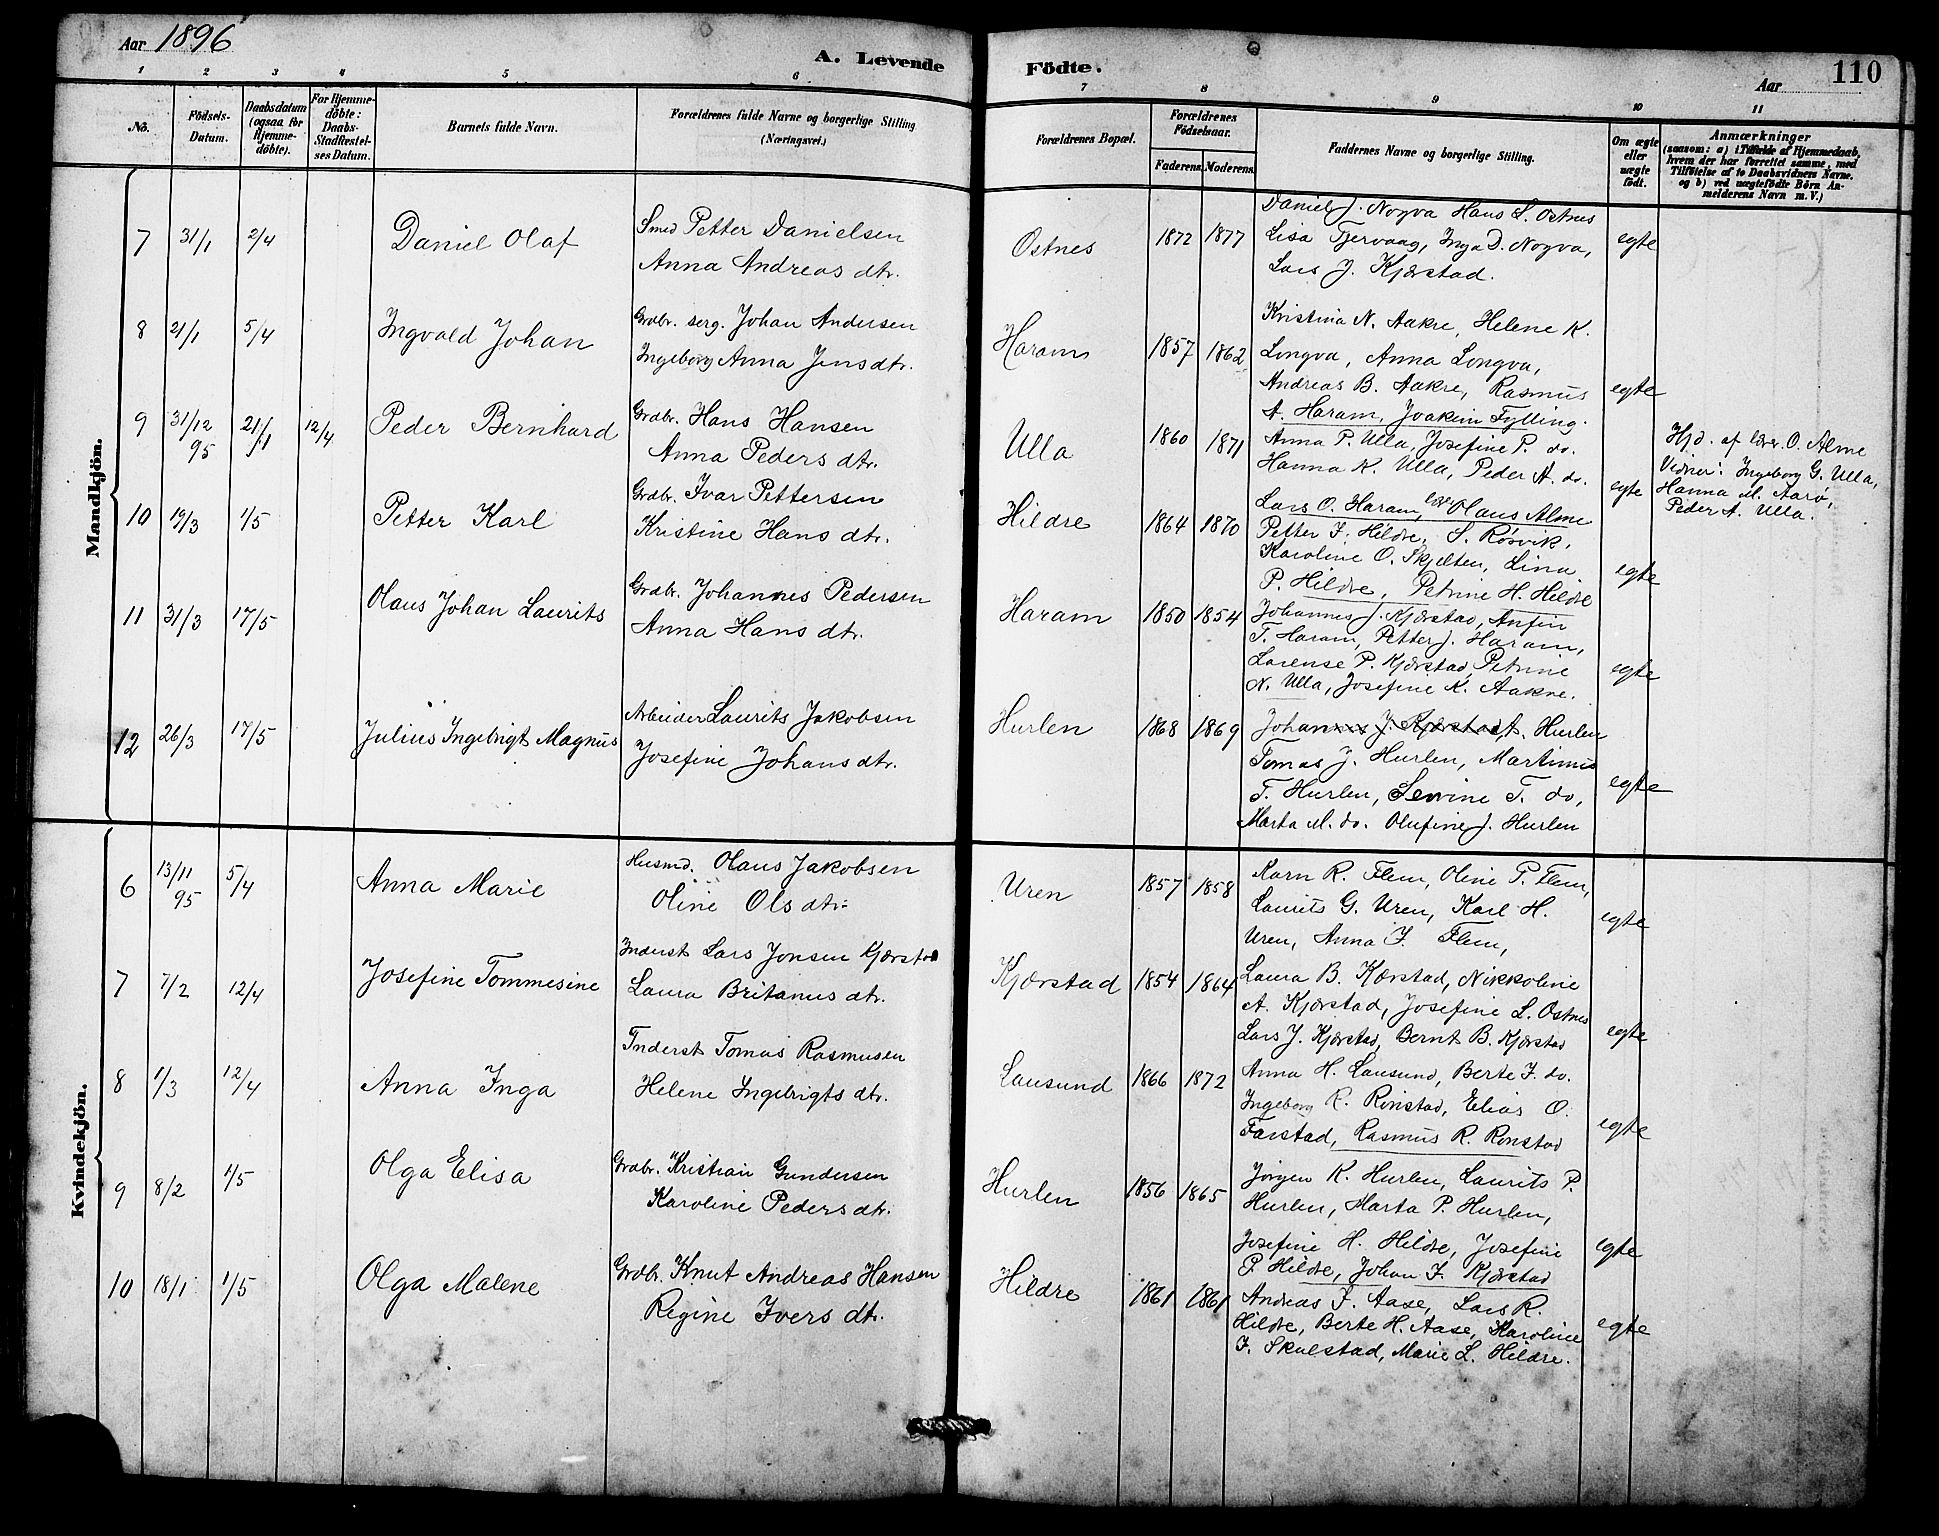 Aar 1896
A. Levende Födte.
Aar
110
1 2 3 4 5 6 7 8 9 10 11
No.
Födsels-Datum.
Daabsdatum (ogsaa for Hjemme-döbte).
For Hjemme-döbte: Daabs-Stadfæstel-ses Datum.
Barnets fulde Navn.
Forældrenes fulde Navne og borgerlige Stilling (Næringsvei.)
Forældrenes Bopæl.
Forældrenes Födselsaar.
Faderens. Moderens.
Faddernes Navne og borgerlige Stilling.
Om ægte eller uægte födt.
Anmærkninger
(saasom: a) i Tilfælde af Hjemmedaab,
hvem der har forrettet samme, med
Tilföielse af to Daabsvidners Navne.
og b) ved uægtefödte Börn An-
melderens Navn m.V.)
Mandkjön.
7 31/1 2/4 Daniel Olaf
Smed Petter Danielsen
Anna Andreas dtr.
Ostnes 1872 1877
Daniel J. Nogva Hans L. Ostnes
Lisa Tjervaag, Inga D. Nogva,
Lars J. Kjærstad.
egte
8 21/1 5/4 Ingvald Johan
Grdbr. serg. Johan Andersen
Ingeborg Anna Jens dtr.
Haram 1857 1862
Kristina N. Aakre, Helene K.
Longva, Anna Longva,
Andreas B. Aakre, Rasmus
A. Haram, Joakim Fylling.
egte
9 31/12 95 21/1 12/4 Peder Bernhard
Grdbr. Hans Hansen
Anna Peders dtr.
Ulla 1860 1871
Anna P. Ulla, Josefine P. do.
Hanna K. Ulla, Peder A. do.
Lars O. Haram, lær. Olaus Alme
egte
Hjd. af lærer O. Alme
Vidner: Ingeborg G. Ulla,
Hanna M. Aarø,
Peder A. Ulla.
10 19/3 1/5 Petter Karl
Grdbr. Ivar Pettersen
Kristine Hans dtr.
Hildre 1864 1870
Petter I. Hildre, S. Rosvik,
Karoline O. Skjelten, Lina
P. Hildre, Petrine H. Hildre
egte
11 31/3 17/5 Olaus Johan Laurits
Grdbr. Johannes Pedersen
Anna Hans dtr.
Haram 1850 1854
Johannes J. Kjærstad, Anfin
T. Haram, Petter J. Haram,
Lorense P. Kjærstad, Petrine
N. Ulla, Josefine K. Aakre.
egte
12 26/3 17/5 Julius Ingebrigt Magnus
Arbeider Laurits Jakobsen
Josefine Johans dtr.
Hurlen 1868 1869
Johannes J. Kjærstad, A. Hurlen
Tomas J. Hurlen, Martinus
T. Hurlen, Sevrine T. do,
Marta M. do. Olufine J. Hurlen
egte
Kvindekjön.
6 13/11 95 5/4 Anna Marie
Husmd. Olaus Jakobsen
Oline Ols dtr.
Uren 1857 1858
Karn R. Flem, Oline P. Flem,
Laurits G. Uren, Karl H.
Uren, Anna I. Flem,
egte
7 7/2 12/4 Josefine Tommesine
Inderst Lars Jonsen Kjærstad
Laura Britanus dtr.
Kjærstad 1854 1864
Laura B. Kjærstad, Nikkoline
A. Kjærstad, Josefine L. Ostnes
Lars J. Kjærstad, Bernt B. Kjærstad
egte
8 1/3 12/4 Anna Inga
Inderst Tomas Rasmusen
Helene Ingebrigts dtr.
Lausund 1866 1872
Anna H. Lausund, Berte I. do.
Ingeborg R. Rønstad, Elias O.
Farstad, Rasmus R. Rønstad
egte
9 8/2 1/5 Olga Elisa
Grdbr. Kristian Gundersen
Karoline Peders dtr.
Hurlen 1856 1865
Jørgen K. Hurlen, Laurits P.
Hurlen, Marta P. Hurlen,
Josefine H. Hildre, Josefine
P. Hildre, Johan I. Kjærstad
egte
10 18/1 1/5 Olga Malene
Grdbr. Knut Andreas Hansen
Regine Ivers dtr.
Hildre 1861 1861
Andreas I. Aase, Lars R.
Hildre, Berte H. Aase, Karoline
I. Skulstad, Marie L. Hildre.
egte